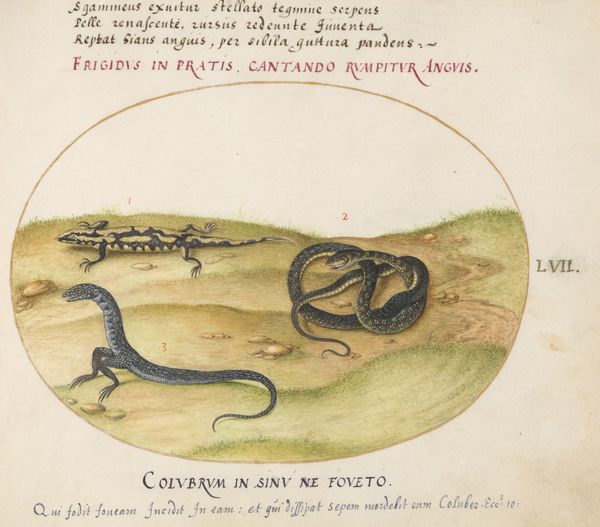 Sqammeus exuitur stellato tegmine serpens
Pelle renascente, rursus redeunte Juventa
Reptat hians anguis, per sibila guttura pandens:~
FRIGIDVS IN PRATIS, CANTANDO RVMPITVR ANGVIS.
1
2
LVII.
3
COLVBRVM IN SINV NE FOVETO.
Qui fodit foveam Incidit In eam: et qui dissipat sepem mordebit eum Coluber. Ecc. 10: